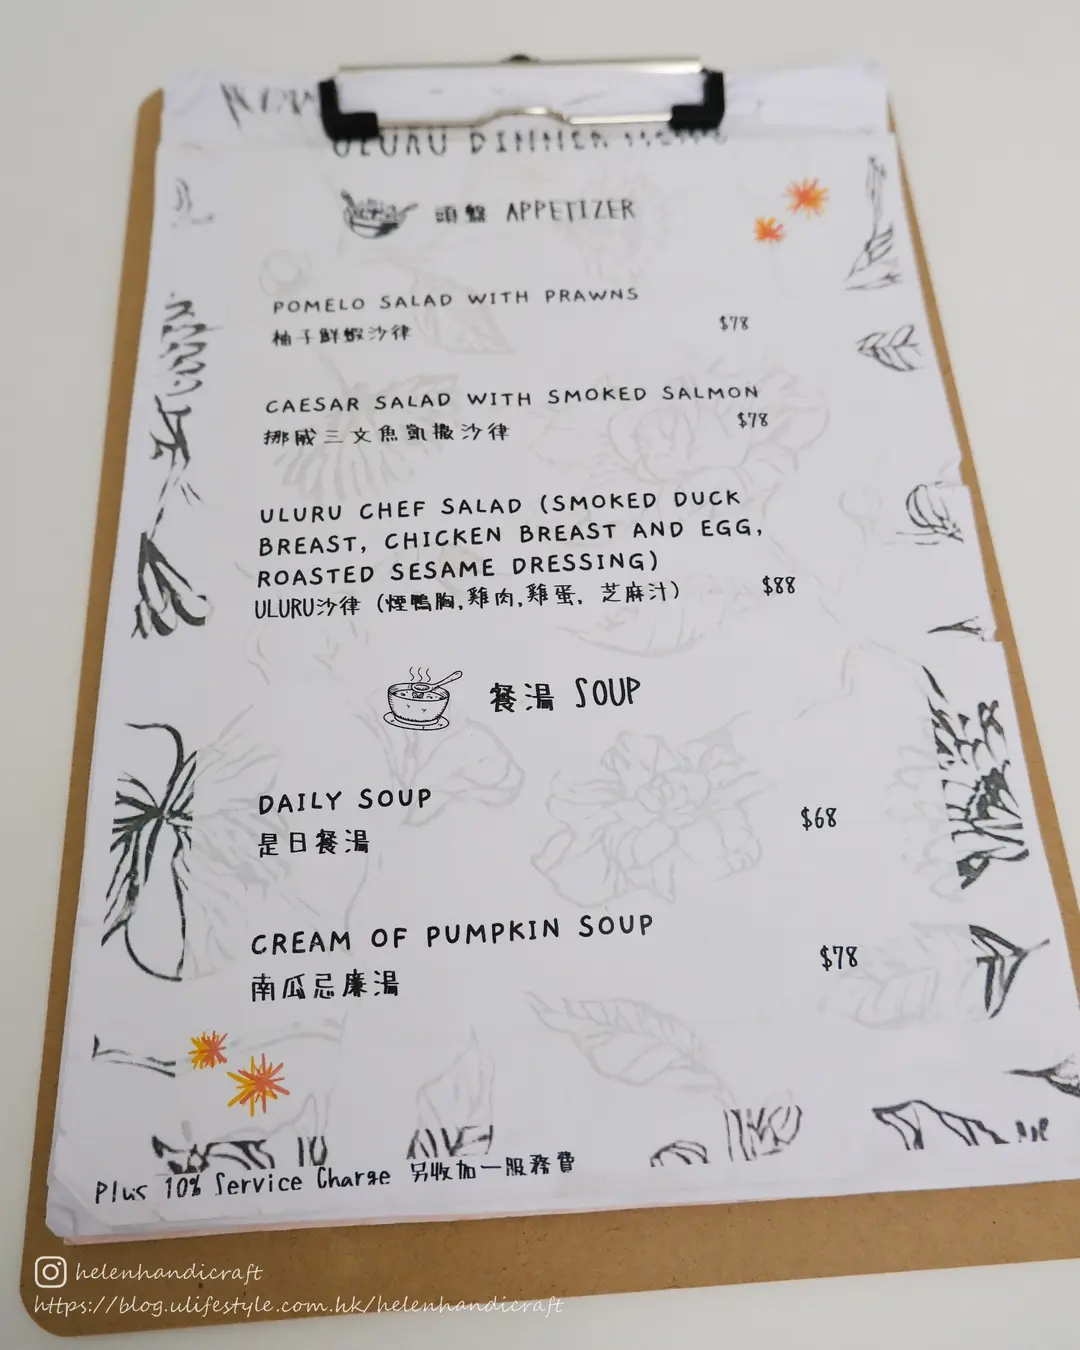 ULURU DINNER MENU
頭盤 APPETIZER
POMELO SALAD WITH PRAWNS
柚子鮮蝦沙律
$78
CAESAR SALAD WITH SMOKED SALMON
挪威三文魚凱撒沙律
$78
ULURU CHEF SALAD (SMOKED DUCK
BREAST, CHICKEN BREAST AND EGG,
ROASTED SESAME DRESSING)
ULURU沙律 (煙鴨胸,雞肉,雞蛋, 芝麻汁)
$88
餐湯 SOUP
DAILY SOUP
是日餐湯
$68
CREAM OF PUMPKIN SOUP
南瓜忌廉湯
$78
Plus 10% Service Charge 另收加一服務費
helenhandicraft
https://blog.ulifestyle.com.hk/helenhandicraft